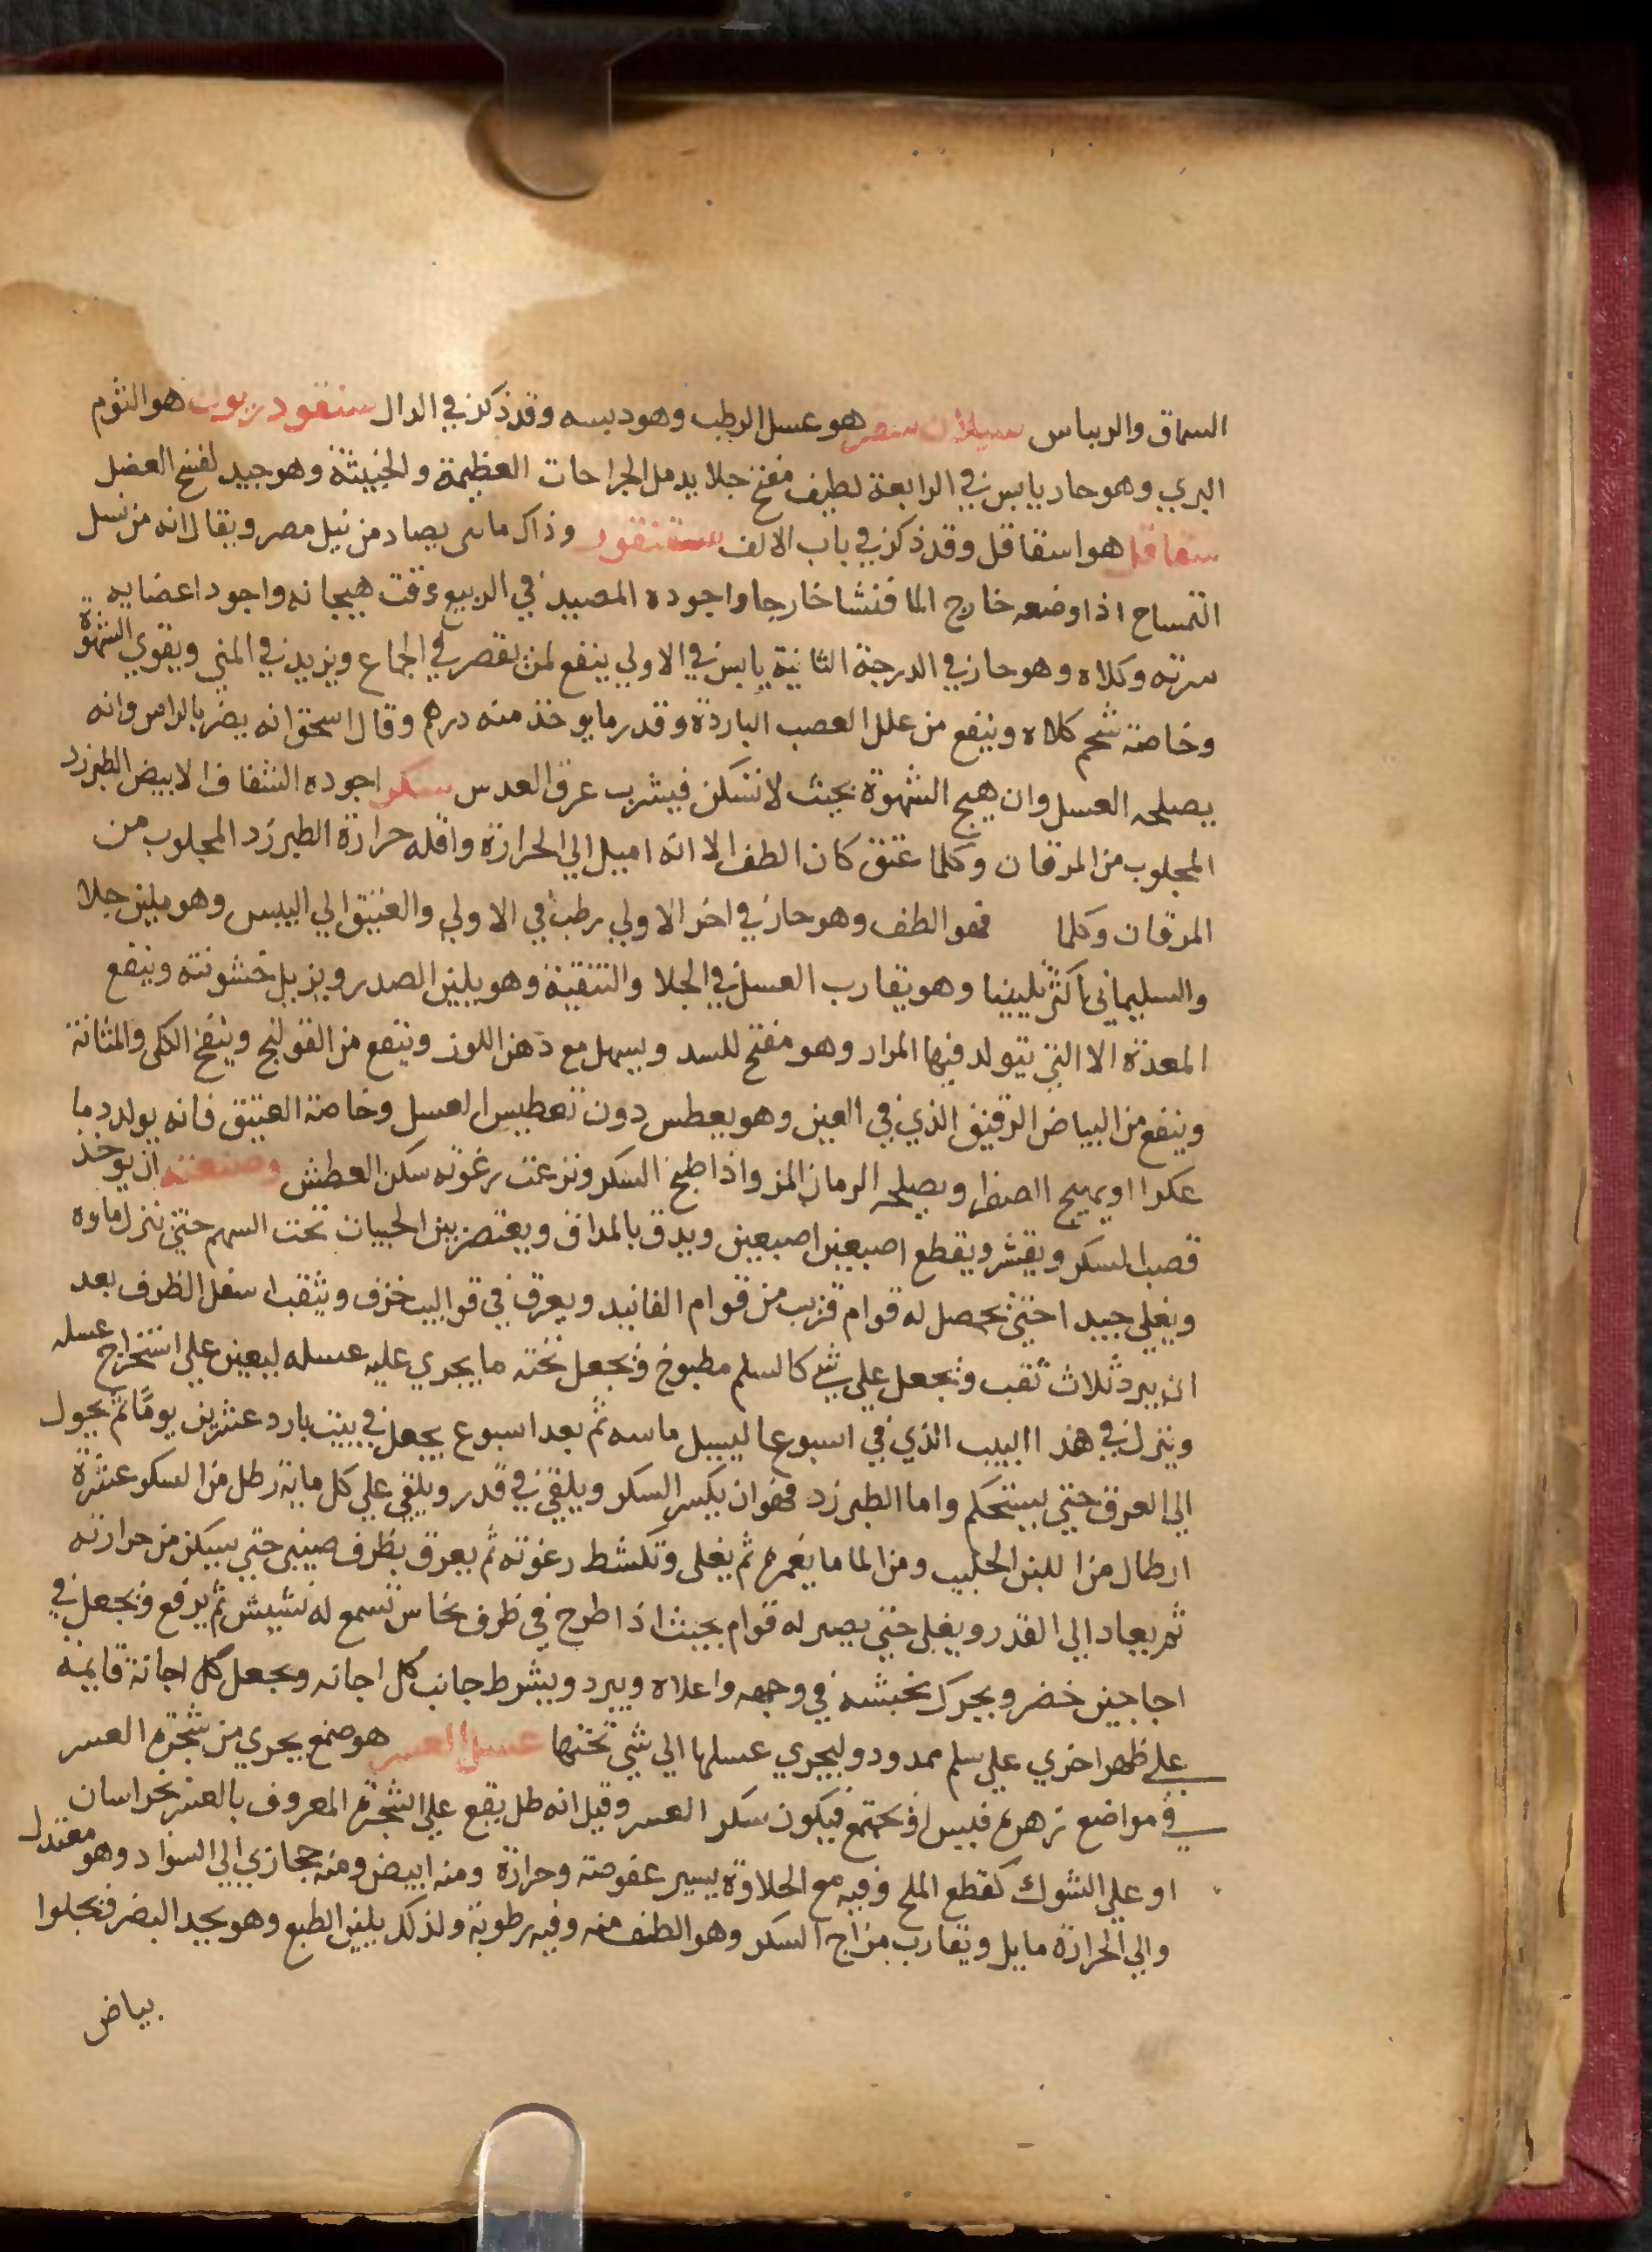 السماق والريباس سيلان هو عسل الرطب وهو دبسه وقد ذكر في الدال هو الثوم
البري وهو حار يابس في الرابعة لطيف مفتح جلا يدمل الجراحات العظيمة والخبيثة وهو جيد لفسخ العضل
سقاقل هو اسقاقل وقد ذكر في باب الالف سقنقور وذاك مايى يصاد من نيل مصر ويقال انه من نسل
التمساح اذا وضعه خارج الما فنشا خارجا واجوده المصيد في الربيع وقت هيجانه واجود اعضايه
سرته وكلاه وهو حار في الدرجة الثانية يابس في الاولي ينفع لمن يقصر في الجماع ويزيد في المني ويقوي الشهوة
وخاصة شحم كلاه وينفع من علل العصب الباردة وقدر ما يوخذ منه درهم وقال اسحق انه يضر بالراس وانه
يصلحه العسل وان هيج الشهوة بحيث لا تسكن فيشرب عرق العدس سكر اجوده الشفاف الابيض الطبرزد
المجلوب من المرقان وكلما عتق كان الطف الا انه اميل الي الحرارة واقله حرارة الطبرزد المجلوب من
المرقان وكلما فهو الطف وهو حار في اخر الاولي رطب في الاولي والعتيق الي اليبس وهو ملين جلا
والسليماني اكثر تليينا وهو يقارب العسل في الجلا والتنقية وهو يلين الصدر ويزيل خشونته وينفع
المعدة الا التي يتولد فيها المرار وهو مفتح للسدد ويسهل مع دهن اللوز وينفع من القولنج وينفخ الكلي والمثانة
وينفع من البياض الرقيق الذي في العين وهو يعطس دون تعطيس العسل وخاصة العتيق فانه يولد دما
عكرا او يهيج الصفرا ويصلحه الرمان المز واذا طبخ السكر ونزعت رغوته سكن العطش وصنعته ان يوخذ
قصب السكر ويقشر ويقطع اصبعين اصبعين ويدق بالمداق ويعتصر بين الحبيات تحت السهم حتي ينزل ماوه
ويغلي جيدا حتي يحصل له قوام قريب من قوام الفانيد ويعرق في قواليب خزف ويثقب اسفل الظرف بعد
ان يبرد ثلاث ثقب ويجعل علي شي كالسلم مطبوخ ويجعل تحته ما يجري عليه عسله ليعين علي استخراج عسله
وينزل في هذا البيب الذي في اسبوعا ليسيل ماسه ثم بعد اسبوع يجعل في بيت بارد عشرين يوما ثم يحول
الي العرق حتي يستحكم واما الطبرزد فهو ان يكسر السكر ويلقي في قدر ويلقي علي كل ماية رطل من السكر عشرة
ارطال من اللبن الحليب ومن الما ما يغمره ثم يغلي وتكشط رغوته ثم يعرق بظرف صيني حتي يسكن من حرارته
ثم يعاد الي القدر ويغلي حتي يصير له قوام بحيث اذا طرح في ظرف نحاس تسمع له نشيش ثم يرفع ويجعل في
اجاجين خضر ويحرك بخشبه في وجهه واعلاه ويبرد ويشرط جانب كل اجانه ويجعل كل اجانة قايمة
علي ظهر اخري علي سلم ممدود وليجري عسلها الي شي تحتها عسل العسر هو صمغ يجري من شجرة العسر
في مواضع زهره فييس ويجتمع فيكون سكر العسر وقيل انه طل يقع علي الشجرة المعروف بالعشر بخراسان
او علي الشوك كقطع الملح وفيه مع الحلاوة يسير عفوصة وحرارة ومنه ابيض ومنه حجازي الي السواد وهو معتدل
والي الحرارة مايل ويقارب مزاج السكر وهو الطف منه وفيه رطوبة ولذلك يلين الطبع وهو يحد البصر فيجلوا
بياض